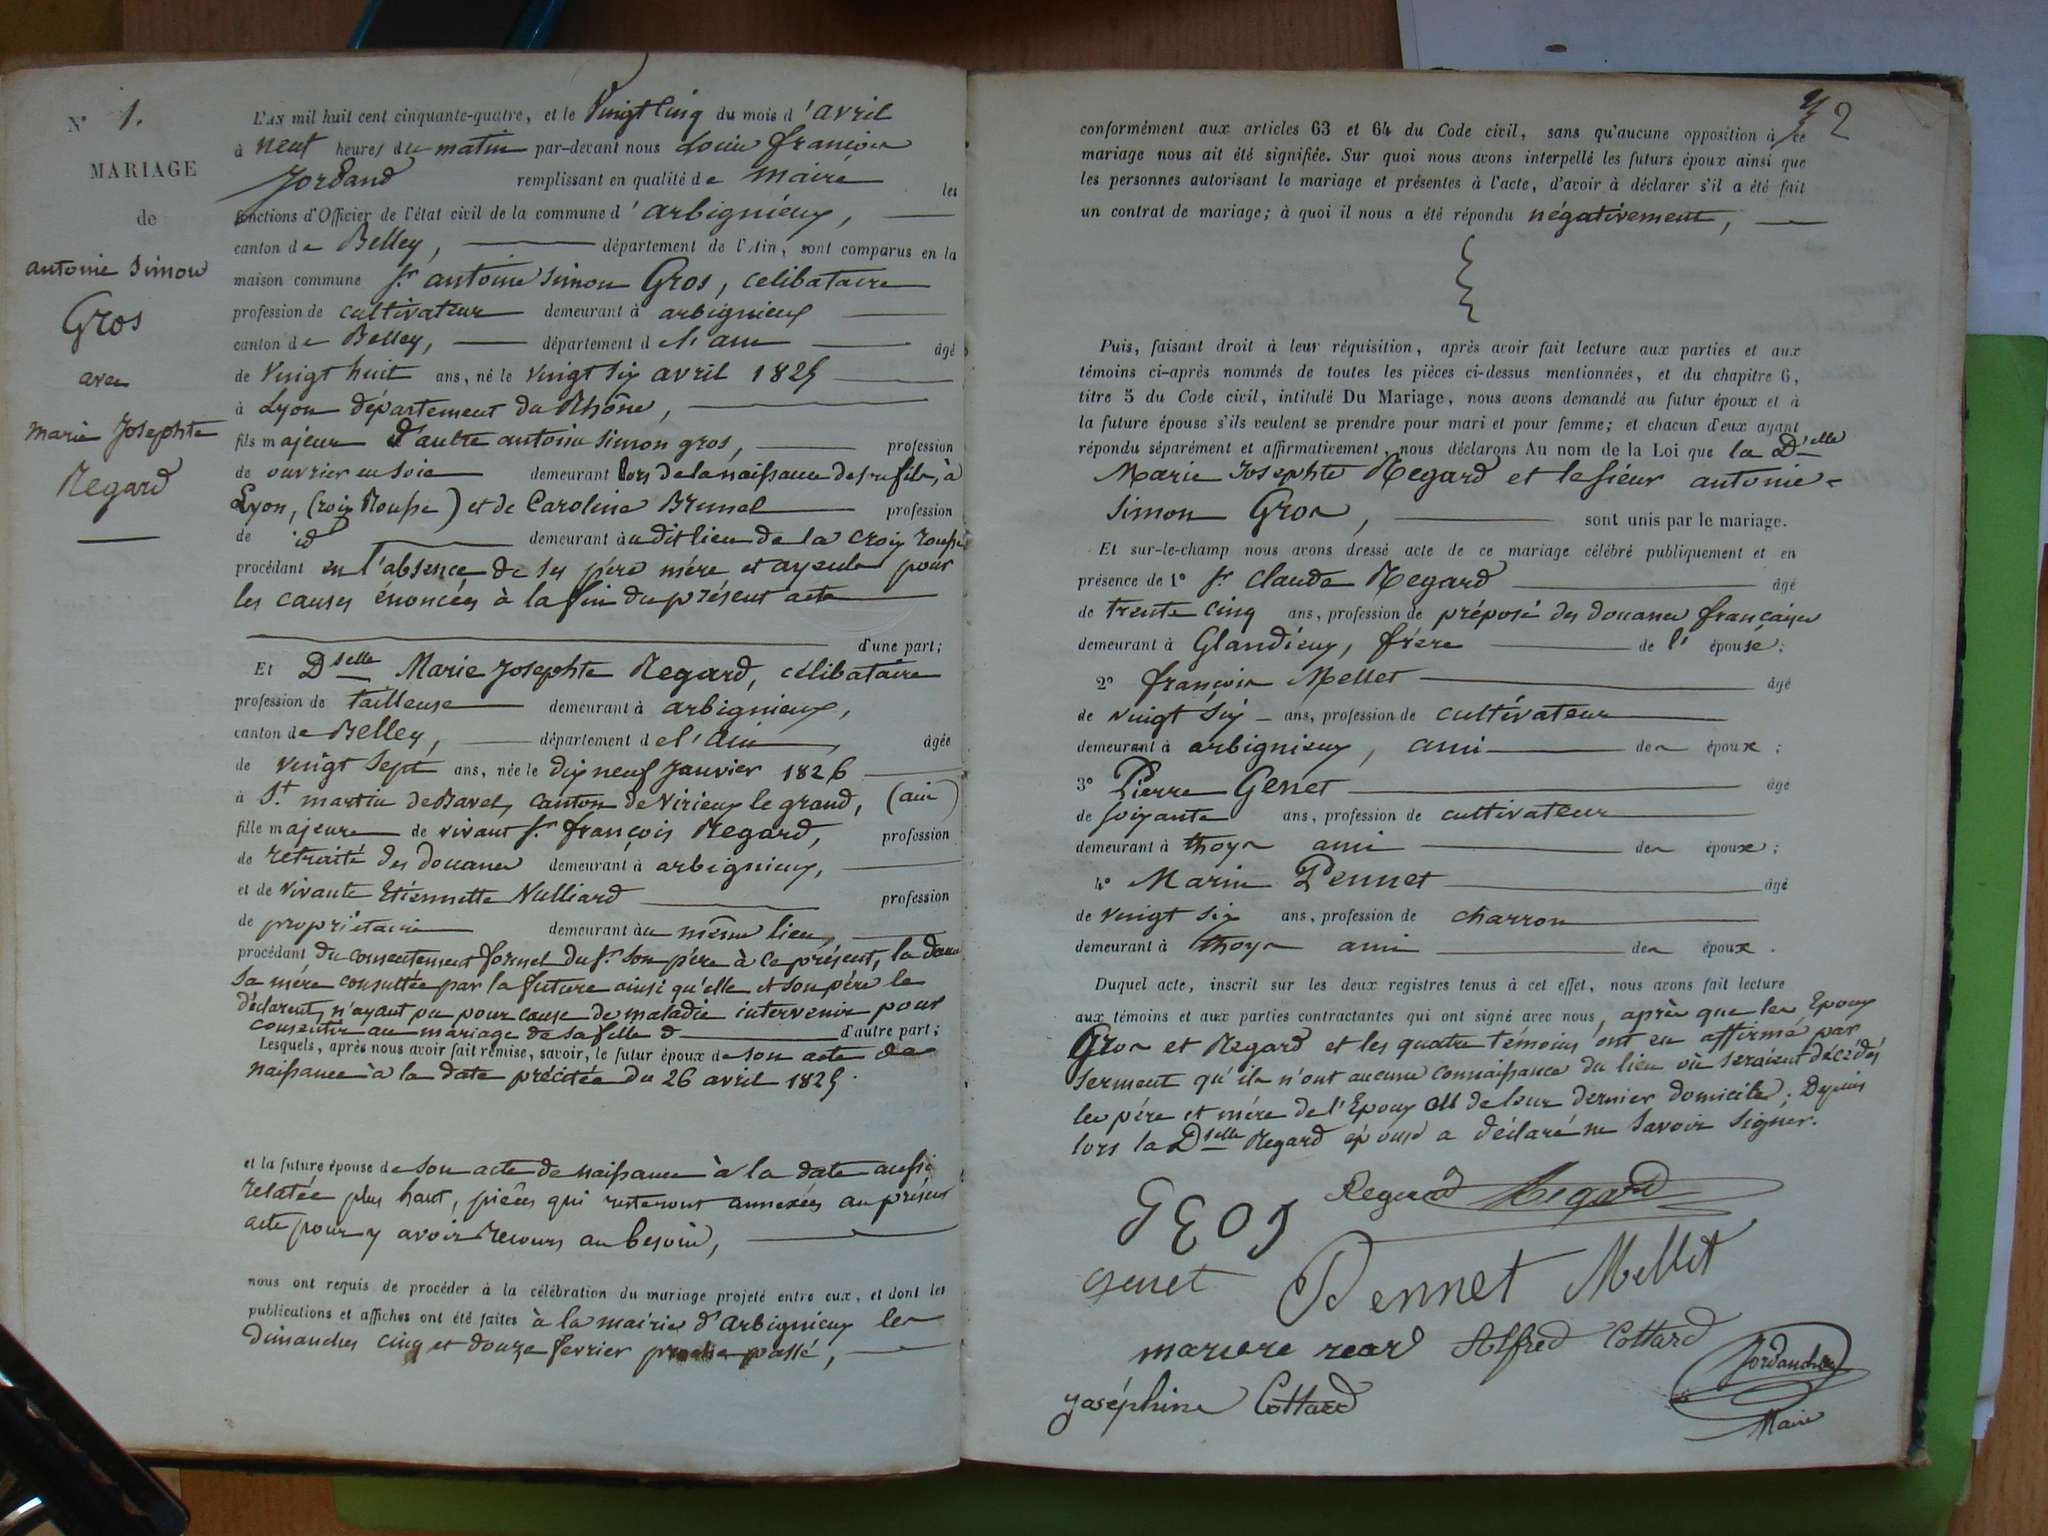 N° 1.
MARIAGE
de
antoine Simon
Gros
avec
Marie Josephte
Regard
L'AN mil huit cent cinquante-quatre, et le Vingt cinq du mois d'avril
à neuf heures du matin par-devant nous Louis françois
Jordand remplissant en qualité de Maire les
fonctions d'Officier de l'état civil de la commune d'arbignieux,
canton de Belley, département de l'Ain, sont comparus en la
maison commune Sr antoine Simon Gros, celibataire
profession de cultivateur demeurant à arbignieux
canton de Belley, département de l'ain âgé
de vingt huit ans, né le vingt six avril 1825
à Lyon département du Rhône,
fils majeur d'autre antoine simon gros, profession
de ouvrier en soie demeurant lors de la naissance de son fils, à
Lyon, (croix Rousse) et de Caroline Brunel profession
de id demeurant audit lieu de la croix rousse
procédant en l'absence de ses père mère et ayeuls pour
les causes énoncées à la fin du présent acte
d'une part;
Et Dselle Marie Josephte Regard, célibataire
profession de tailleuse demeurant à arbignieux,
canton de Belley, département de l'Ain, âgée
de vingt sept ans, née le dix neuf Janvier 1826
à St martin de Bavel, canton de Virieux le grand, (ain)
fille majeure de vivant Sr françois Regard, profession
de retraité des douanes demeurant à arbignieux,
et de vivante Etiennette Vulliard profession
de propriétaire demeurant au même lieu,
procédant du consentement formel du Sr son père à ce présent, la dame
sa mère consultée par la future ainsi qu'elle et son père le
déclarent, n'ayant pu pour cause de maladie intervenir pour
consentir au mariage de sa fille d d'autre part;
Lesquels, après nous avoir fait remise, savoir, le futur époux de son acte de
naissance à la date précitée du 26 avril 1825.
et la future épouse de son acte de naissance à la date aussi
relatée plus haut, pièces qui resteront annexées au présent
acte pour y avoir recours au besoin,
nous ont requis de procéder à la célébration du mariage projeté entre eux, et dont les
publications et affiches ont été faites à la mairie d'Arbignieux les
dimanches cinq et douze fevrier passé,
2
conformément aux articles 63 et 64 du Code civil, sans qu'aucune opposition à ce
mariage nous ait été signifiée. Sur quoi nous avons interpellé les futurs époux ainsi que
les personnes autorisant le mariage et présentes à l'acte, d'avoir à déclarer s'il a été fait
un contrat de mariage; à quoi il nous a été répondu négativement,
Puis, faisant droit à leur réquisition, après avoir fait lecture aux parties et aux
témoins ci-après nommés de toutes les pièces ci-dessus mentionnées, et du chapitre 6,
titre 5 du Code civil, intitulé Du Mariage, nous avons demandé au futur époux et à
la future épouse s'ils veulent se prendre pour mari et pour femme; et chacun d'eux ayant
répondu séparément et affirmativement, nous déclarons Au nom de la Loi que la Dselle
Marie Josephte Regard et le sieur antoine-
simon Gros, sont unis par le mariage.
Et sur-le-champ nous avons dressé acte de ce mariage célébré publiquement et en
présence de 1° Sr claude Regard âgé
de trente cinq ans, profession de préposé des douanes françaises
demeurant à Glandieux, frère de l'épouse;
2° françois Mellet âgé
de vingt six ans, profession de cultivateur
demeurant à arbignieux, ami des époux;
3° Pierre Genet âgé
de soixante ans, profession de cultivateur
demeurant à thoys ami des époux;
4° Marin Pennet âgé
de vingt six ans, profession de charron
demeurant à thoys ami des époux.
Duquel acte, inscrit sur les deux registres tenus à cet effet, nous avons fait lecture
aux témoins et aux parties contractantes qui ont signé avec nous, après que les Epoux
Gros et Regard et les quatre témoins ont eu affirmé par
serment qu'ils n'ont aucune connaissance du lieu où seraient décédés
les père et mère de l'Epoux et de leur dernier domicile; Depuis
lors la Dselle Regard épouse a déclaré ne savoir signer.
Regard Regard
GROS
genet Pennet Mellet
Alfred Cottard
Joséphine Cottard
Maire